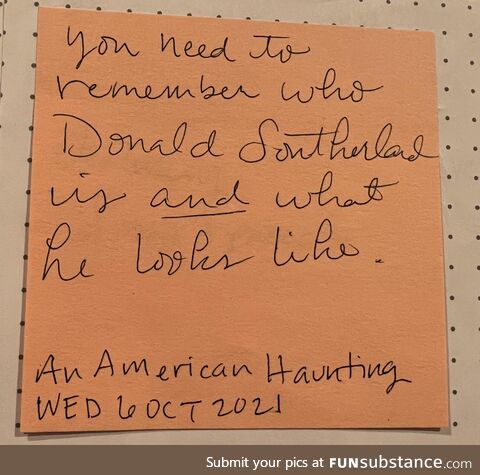 You need to
remember who
Donald Southerland
is and what
he looks like.
An American Haunting
WED 6 OCT 2021
Submit your pics at FUNsubstance.com